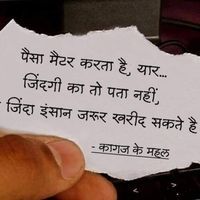 पैसा मैटर करता है, यार...
जिंदगी का तो पता नहीं,
जिंदा इंसान जरूर खरीद सकते है
- कागज के महल